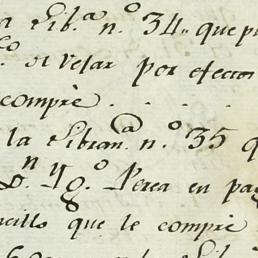 a Lib.ª n.º 34,, que p
.co de Velar por efectos
compré . . . .
la Libran.ª n.º 35 q
D.n Yg.º Perea en pa
cillo que le compré